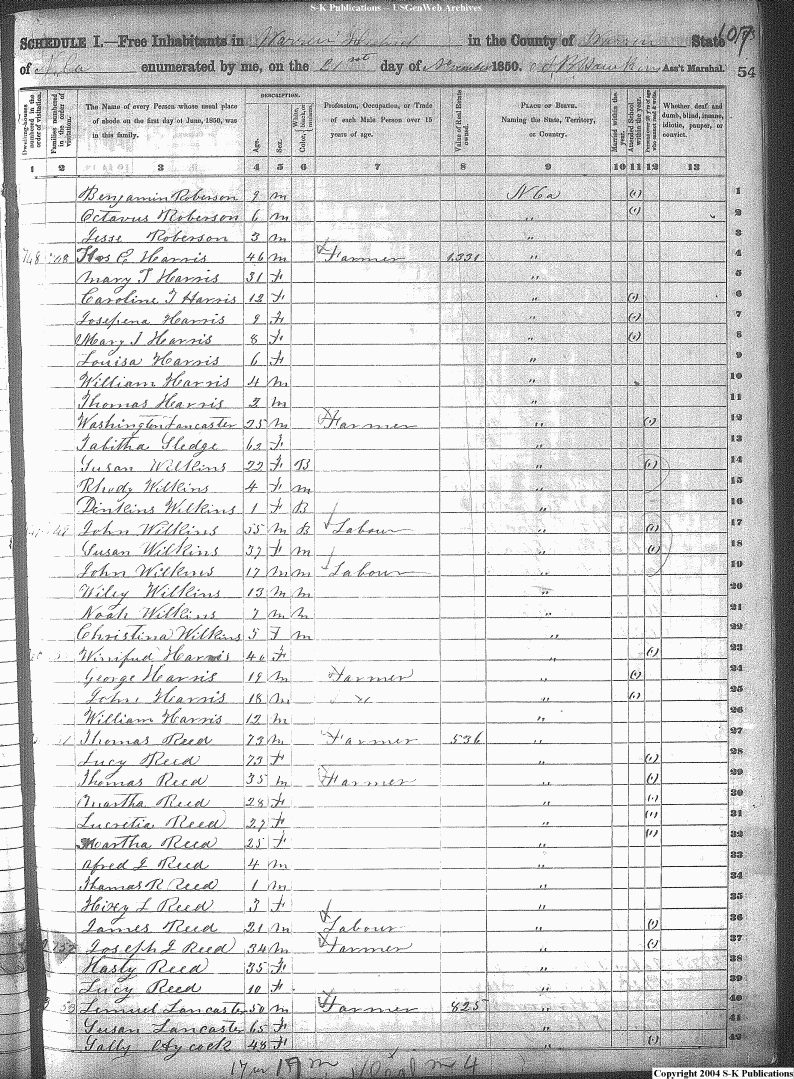 S-K Publications -- USGenWeb Archives
SCHEDULE I.—Free Inhabitants in Warren District in the County of Warren State 607
of N Ca enumerated by me, on the 21st day of November 1850. Ass't Marshal. 54
DESCRIPTION.
Dwelling-houses numbered in the order of visitation.
Families numbered in the order of visitation.
The Name of every Person whose usual place of abode on the first day of June, 1850, was in this family.
Age.
Sex.
Color.
Profession, Occupation, or Trade of each Male Person over 15 years of age.
Value of Real Estate owned.
PLACE OF BIRTH. Naming the State, Territory, or Country.
Married within the year.
Attended School within the year.
Persons over 20 y'rs of age who cannot read & write.
Whether deaf and dumb, blind, insane, idiotic, pauper, or convict.
1 2 3 4 5 6 7 8 9 10 11 12 13
Benjamin Roberson 9 m N Ca (1) 1
Octavus Roberson 6 m " (1) 2
Jesse Roberson 3 m " 3
748 Thos C Harris 46 m Farmer 1331 " 4
Mary T Harris 31 f " 5
Caroline T Harris 12 f " (1) 6
Josepena Harris 9 f " (1) 7
Mary J Harris 8 f " (1) 8
Louisa Harris 6 f " 9
William Harris 4 m " 10
Thomas Harris 2 m " 11
Washington Lancaster 25 m Farmer " (1) 12
Tabitha Sledge 62 f " 13
Susan Wilkins 22 f B " (1) 14
Rhody Wilkins 4 f m " 15
Dinkins Wilkins 1 f B " 16
John Wilkins 55 m B Labour " (1) 17
Susan Wilkins 37 f m " (1) 18
John Wilkins 17 m m Labour " 19
Wiley Wilkins 13 m m " 20
Noah Wilkins 7 m m " 21
Christina Wilkins 5 f m " 22
Winifud Harris 40 f " (1) 23
George Harris 19 m Farmer " (1) 24
John Harris 18 m " " (1) 25
William Harris 12 m " 26
Thomas Reed 73 m Farmer 536 " 27
Lucy Reed 73 f " (1) 28
Thomas Reed 35 m Farmer " (1) 29
Martha Reed 28 f " (1) 30
Lucretia Reed 27 f " (1) 31
Martha Reed 25 f " (1) 32
Alfred J Reed 4 m " 33
Thomas R Reed 1 m " 34
Hixy L Reed 3 f " 35
James Reed 21 m Labour " (1) 36
Joseph J Reed 34 m Farmer " (1) 37
Hasty Reed 35 f " 38
Lucy Reed 10 f " 39
53 Lemuel Lancaster 50 m Farmer 825 " 40
Susan Lancaster 65 f " 41
Sally Aycock 48 f " (1) 42
17 m 19 m
Copyright 2004 S-K Publications